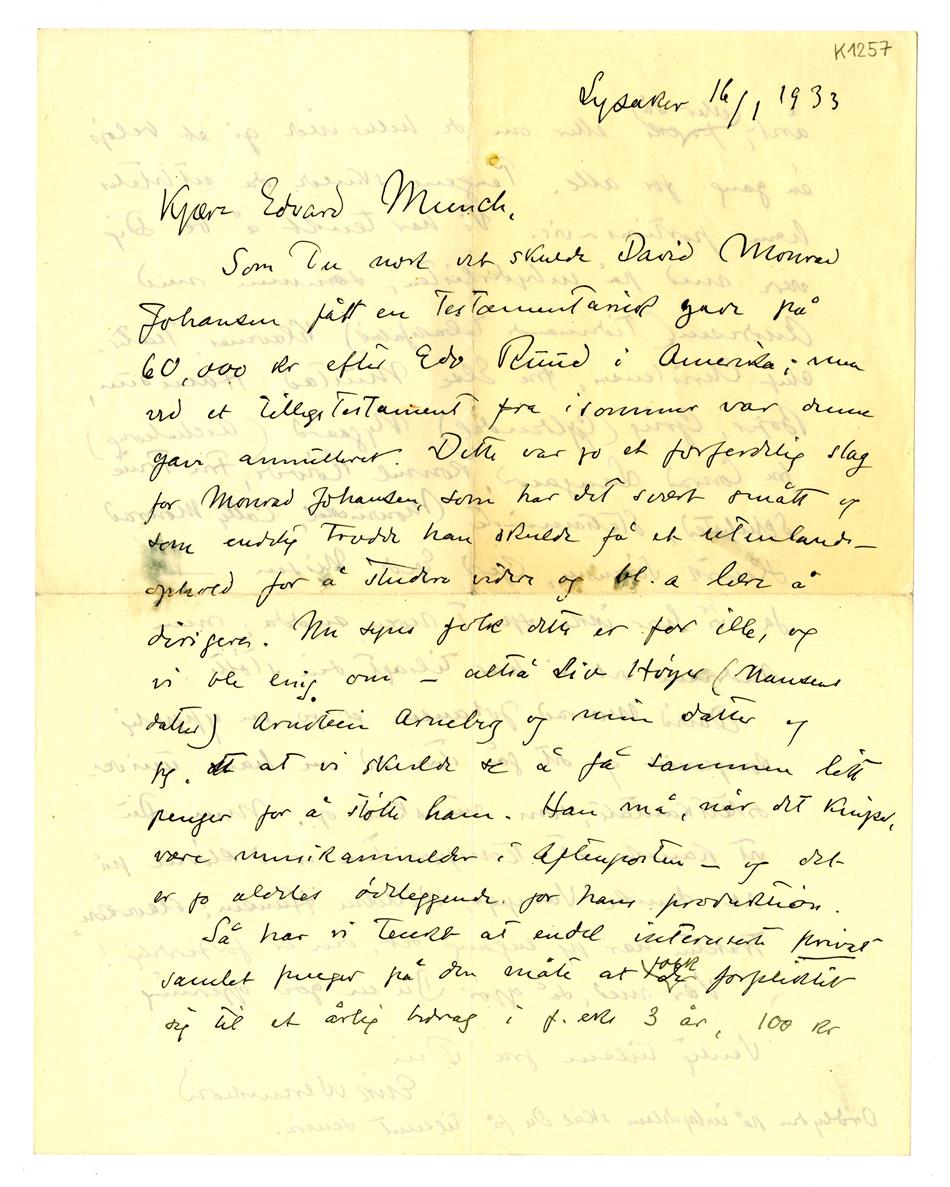 K1257
Lysaker 16/1 1933
Kjære Edvard Munch,
Som Du nock vet skulde David Monrad
Johansen fått en testamentarisk gave på
60,000 kr efter Edv Ruud i Amerika; men
ved et tilleggstestament fra i sommer var denne
gave annulleret. Dette var jo et forferdelig slag
for Monrad Johansen, som har det svært smått og
som endelig trodde han skulde få et utenlands-
ophold for å studere videre og bl. a lære å
dirigere. Nu synes folk dette er for ille, og
vi ble enig om – altså Liv Höyer (Nansens
datter) Arnstein Arneberg og min datter og
jeg, at vi skulde se å få sammen litt
penger for å støtte ham. Han må, når det kniper,
være musikanmelder i Aftenposten – og det
er jo aldeles ödeleggende for hans produktion.
Så har vi tenkt at endel interesserte privat
samlet penger på den måte at folk forpliktet
sig til et årlig bidrag i f. eks 3 år, 100 kr